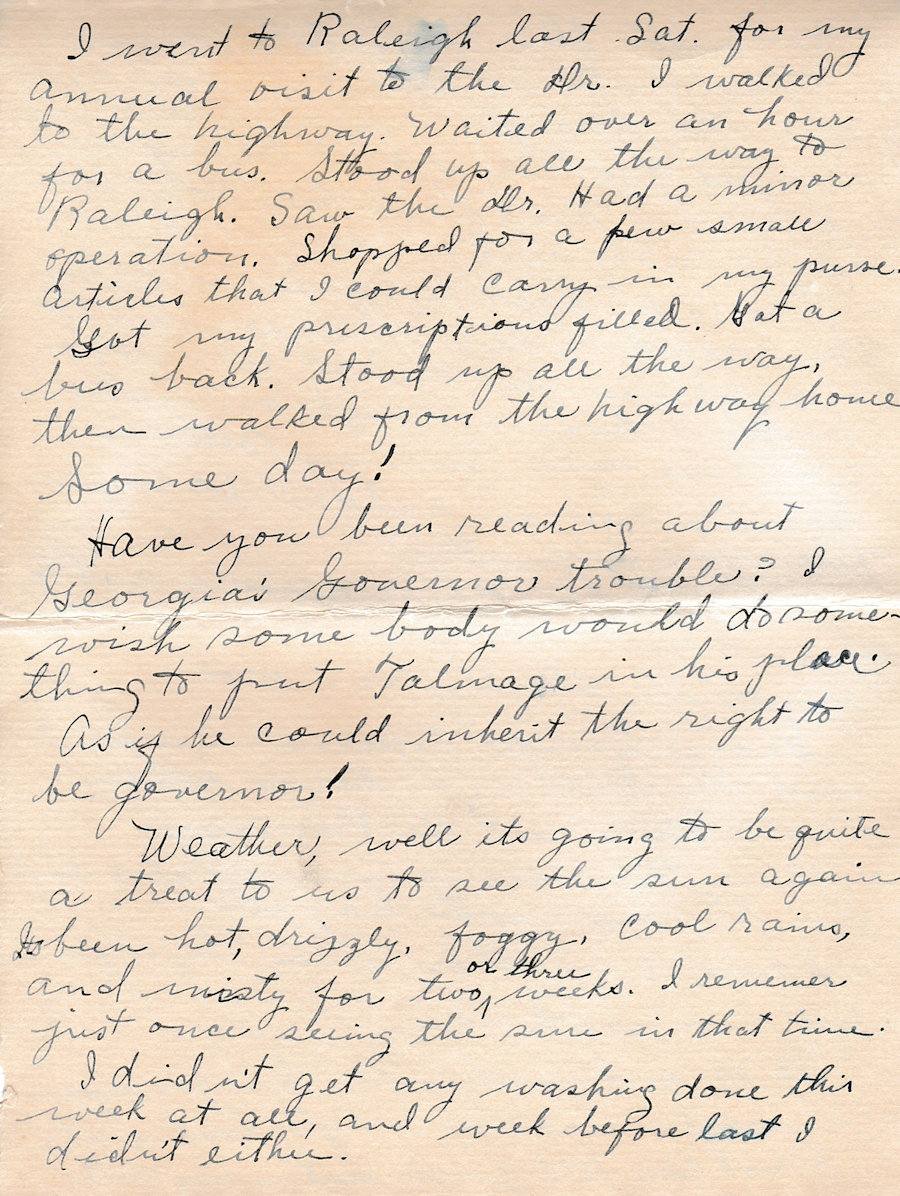 I went to Raleigh last Sat. for my
annual visit to the Dr. I walked
to the highway. Waited over an hour
for a bus. Stood up all the way to
Raleigh. Saw the Dr. Had a minor
operation. Shopped for a few small
articles that I could carry in my purse.
Got my prescriptions filled. Got a
bus back. Stood up all the way,
then walked from the highway home
Some day!
Have you been reading about
Georgia's Governor trouble? I
wish some body would do some-
thing to put Talmage in his place.
As if he could inherit the right to
be governor!
Weather, well its going to be quite
a treat to us to see the sun again
Its been hot, drizzly, foggy, cool rains,
and misty for two or three weeks. I rememer
just once seeing the sun in that time.
I didn't get any washing done this
week at all, and week before last I
didn't either.